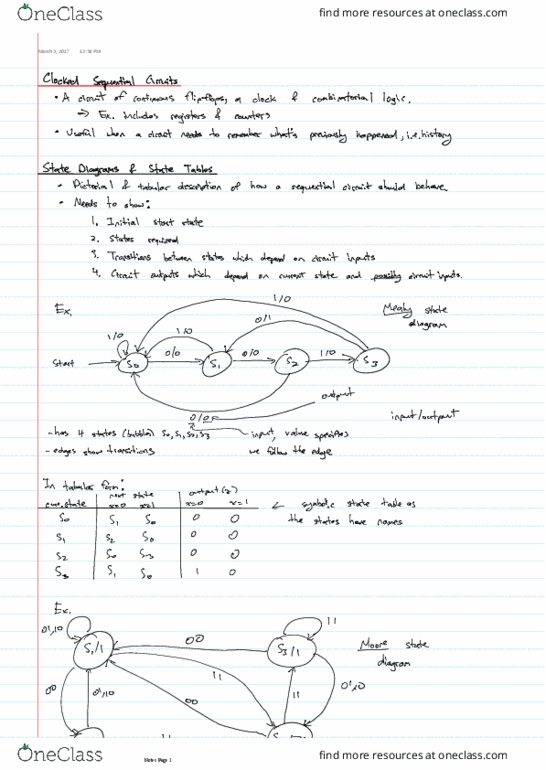 OneClass
find more resources at oneclass.com
March 3, 2017
Clocked Sequential Circuits
• A circuit of continuous flipflops, a clock & combinatorial logic.
→ Ex. includes registers & counters
• Useful when a circuit needs to remember what's previously happened, i.e. history
State Diagrams & State Tables
• Pictorial & tabular description of how a sequential circuit should behave
• Needs to show:
1. Initial start state
2. States required
3. Transitions between states which depend on circuit inputs
4. Circuit outputs which depend on current state and possibly circuit inputs.
Ex.
1/0
Mealy state
diagram
0/1
1/0
1/0
0/0
0/0
1/0
Start
S0
S1
S2
S3
output
0/0
input/output
- has 4 states (bubbles) S0, S1, S2, S3
input, value specifies
- edges show transitions
we follow the edge
In tabular form:
next state
output (z)
curr. state
x=0
x=1
x=0
x=1
← symbolic state table as
the states have names
S0 S1 S0 0 0
S1 S2 S0 0 0
S2 S0 S3 0 0
S3 S1 S0 1 0
Ex.
11
01,10
00
S1/1
S3/1
Moore state
diagram
11
00
01,10
00
11
01,10
11
OneClass
Notes Page 1
find more resources at oneclass.com